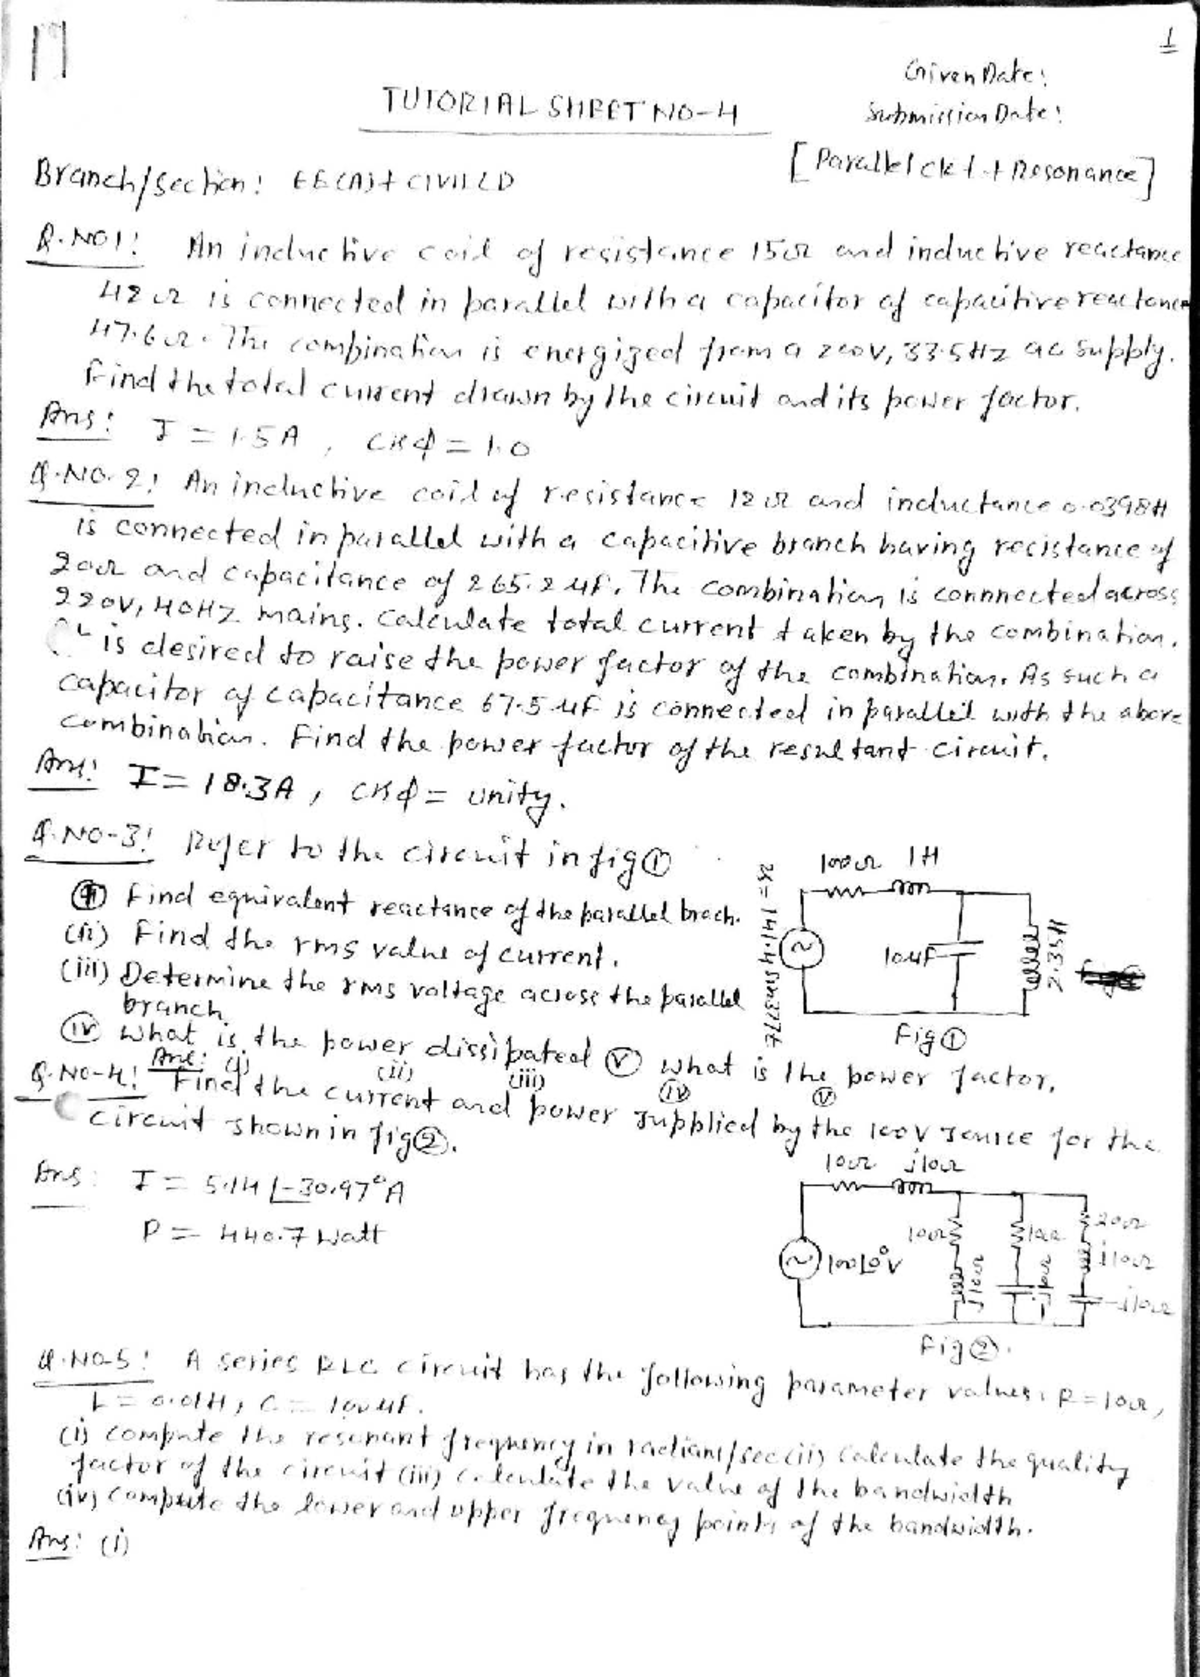 1
Given Date:
TUTORIAL SHEET NO-4
Submission Date:
[Parallel ckt. + Resonance]
Branch/Section: EE(A)+ CIVIL D
Q.NO1: An inductive coil of resistance 15Ω and inductive reactance
42Ω is connected in parallel with a capacitor of capacitive reactance
47.6Ω. The combination is energized from a 200V, 33.5HZ ac supply.
Find the total current drawn by the circuit and its power factor.
Ans: I = 1.5A, cosϕ = 1.0
Q.NO.2: An inductive coil of resistance 12Ω and inductance 0.0398H
is connected in parallel with a capacitive branch having resistance of
20Ω and capacitance of 265.2 uf. The combination is connnected across
220V, 40HZ mains. Calculate total current taken by the combination.
is desired to raise the power factor of the combination. As such a
capacitor of capacitance 67.5 uf is connected in parallel with the above
combination. Find the power factor of the resultant circuit.
Ans: I = 18.3A, cosϕ = unity.
Q.NO-3: Refer to the circuit in fig①
100Ω 1H
(i) Find equivalent reactance of the parallel brach.
(ii) Find the rms value of current.
10uF
2.35H
(iii) Determine the rms voltage across the parallel
branch
Fig①
(iv) What is the power dissipated (v) what is the power factor.
Ans: (i) (ii) (iii) (iv) (v)
Q.NO-4: Find the current and power supplied by the 100V source for the
circuit shown in fig②.
10Ω j10Ω
Ans: I = 5.14 ∠-30.97°A
P = 440.7 Watt
100∠0°V
10Ω
j10Ω
10Ω
-j10Ω
20Ω
j10Ω
-j10Ω
Fig②.
Q.NO-5: A series RLC circuit has the following parameter values: R = 10Ω,
L = 0.01H, C = 100uf.
(i) compute the resonant frequency in radians/sec (ii) Calculate the quality
factor of the circuit (iii) calculate the value of the bandwidth
(iv) Compute the lower and upper frequency points of the bandwidth.
Ans: (i)